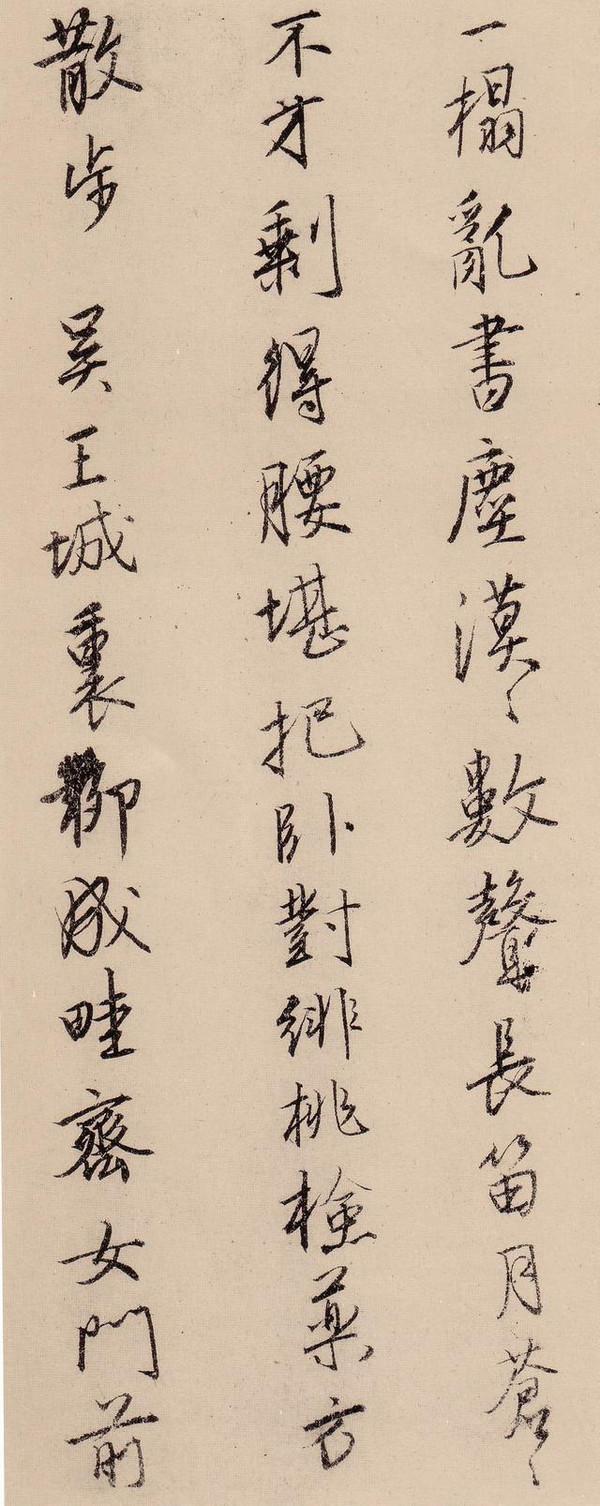 一榻亂書塵漠〻數聲長笛月蒼〻
不才剩得腰堪把臥對緋桃檢藥方
散步 吳王城裏柳成畦齊女門前